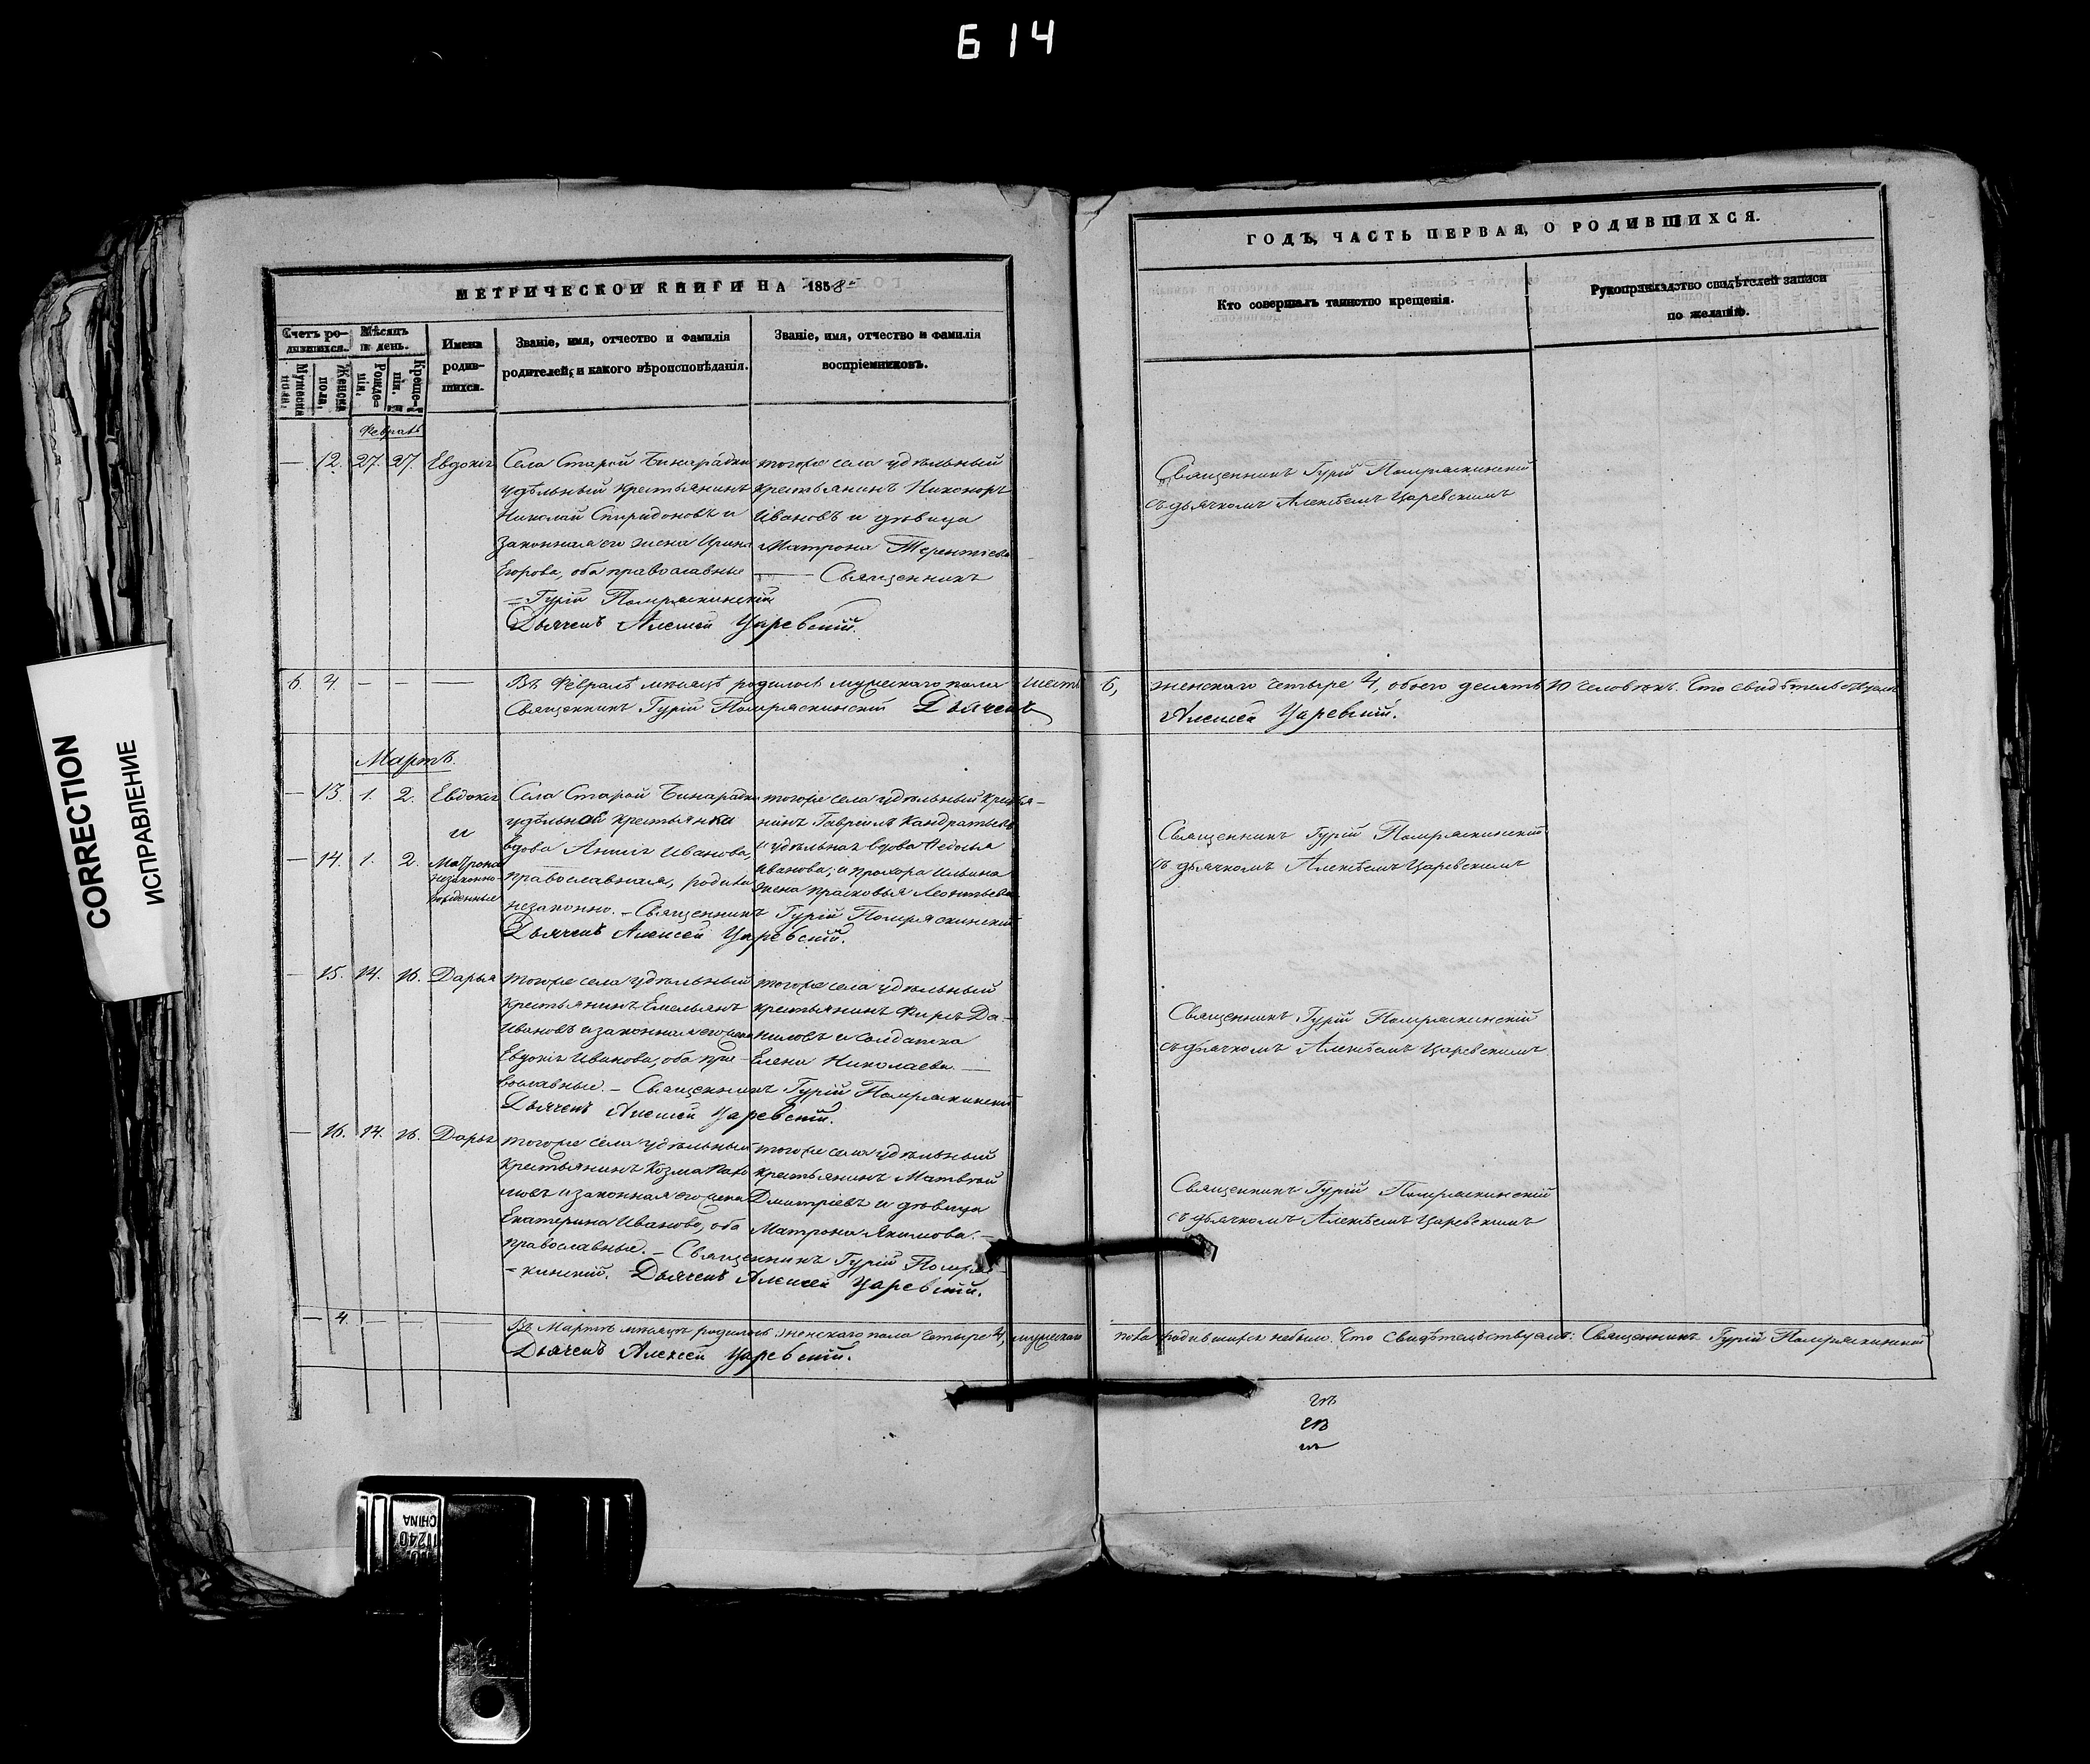 Б 14
CORRECTION
ИСПРАВЛЕНИЕ
МЕТРИЧЕСКОЙ КНИГИ НА 1858й
Счетъ ро-
дившихся.
Мѣсяцъ
и день.
Мужеска
пола.
Женска
пола.
Рожде-
нія.
Креще-
нія.
Имена
родив-
шихся.
Званіе, имя, отчество и фамилія
родителей, и какого вѣроисповѣданія.
Званіе, имя, отчество и фамилія
воспріемниковъ.
Февраль
— 12. 27. 27. Евдокія
Села Старой Бинарадки
удѣльный крестьянинъ
Николай Спиридоновъ и
законная его жена Ирина
Егорова, оба православные
тогоже села удѣльный
крестьянинъ Никоноръ
Ивановъ и дѣвица
Матрона Терентіева
— Священникъ
= Гурій Помряскинскій
Дьячекъ Алексѣй Царевскій.
6. 4. — — —
Въ Февралѣ мѣсяцѣ родилось мужескаго пола шесть
Священникъ Гурій Помряскинскій Дьячекъ
Мартъ.
— 13. 1. 2. Евдокія
и
— 14. 1. 2. Матрона
незаконно-
рожденные
Села Старой Бинарадки
удѣльной крестьянки
вдова Анна Иванова,
православная, родила
незаконно. — Священникъ Гурій Помряскинскій
Дьячекъ Алексѣй Царевскій.
тогоже села удѣльный кресья-
нинъ Гавріилъ Кандратьевъ
и удѣльная вдова Федосья
Иванова, и прохора Ильина
жена прасковья Леонтьева
— 15. 14. 16. Дарья
тогоже села удѣльный
крестьянинъ Емельянъ
Ивановъ и законная его жена
Евдокія Иванова, оба пра-
вославные. — Священникъ Гурій Помряскинскій
Дьячекъ Алексѣй Царевскій.
тогоже села удѣльный
крестьянинъ Фирсъ Да-
ниловъ и солдатка
Елена Николаева —
— 16. 14. 16. Дарья
тогоже села удѣльный
крестьянинъ Козма Пахо
мовъ и законная его жена
Екатерина Иванова, оба
православные. — Священникъ Гурій Помряс-
= кинскій. Дьячекъ Алексѣй Царевскій.
тогоже села удѣльный
крестьянинъ Матвѣй
Дмитріевъ и дѣвица
Матрона Якимова. —
— 4. — —
Въ Мартѣ мѣсяцѣ родилось: женскаго пола четыре 4, мужескаго
Дьячекъ Алексѣй Царевскій.
ГОДЪ, ЧАСТЬ ПЕРВАЯ, О РОДИВШИХСЯ.
Кто совершалъ таинство крещенія.
Рукоприкладство свидѣтелей записи
по желанію.
Священникъ Гурій Помряскинскій
съ дьячкомъ Алексѣемъ Царевскимъ
6, женскаго четыре 4, обоего десять 10 человѣкъ. Что свидѣтельствуемъ
Алексѣй Царевскій.
Священникъ Гурій Помряскинскій
съ дьячкомъ Алексѣемъ Царевскимъ
Священникъ Гурій Помряскинскій
съ дьячкомъ Алексѣемъ Царевскимъ
Священникъ Гурій Помряскинскій
съ дьячкомъ Алексѣемъ Царевскимъ
пола родившихся небыло. Что свидѣтельствуемъ: Священникъ Гурій Помряскинскій
CHINA